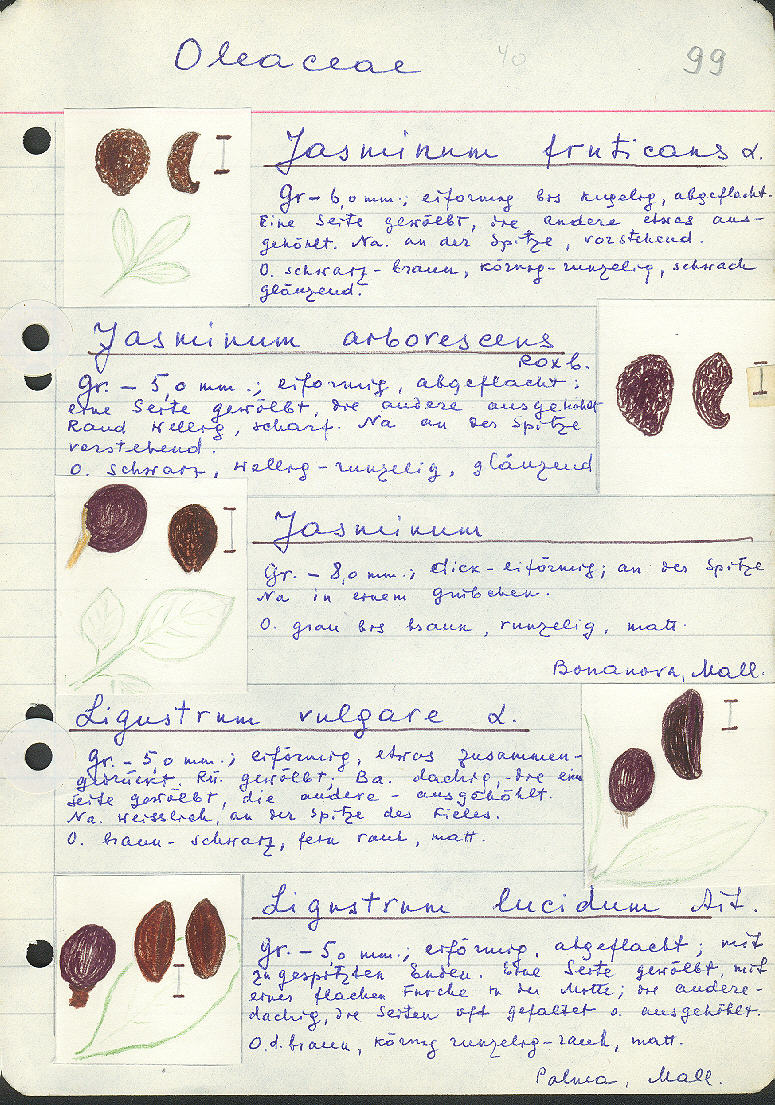 Oleaceae 40 99
Jasminum fruticans L.
Gr – 6,0 mm.; eiförmig bis kugelig, abgeflacht.
Eine Seite gewölbt, die andere etwas aus-
gehöhlt. Na. an der Spitze, vorstehend.
O. schwarz-braun, körnig-runzelig, schwach
glänzend.
Jasminum arborescens
Roxb.
Gr. – 5,0 mm.; eiförmig, abgeflacht;
eine Seite gewölbt, die andere ausgehöhlt
Rand wellig, scharf. Na an der Spitze
vorstehend.
O. schwarz, wellig-runzelig, glänzend
Jasminum
Gr. – 8,0 mm.; dick-eiförmig; an der Spitze
Na in einem Grübchen.
O. grau bis braun, runzelig, matt.
Bonanova, Mall.
Ligustrum vulgare L.
Gr. – 5,0 mm.; eiförmig, etwas zusammen-
gedrückt. Rü. gewölbt; Ba. dachig, die eine
Seite gewölbt, die andere – ausgehöhlt.
Na. weisslich, an der Spitze des Kieles.
O. braun-schwarz, fein rauh, matt.
Ligustrum lucidum Ait.
Gr. – 5,0 mm.; eiförmig, abgeflacht; mit
zugespitzten Enden. Eine Seite gewölbt, mit
einer flachen Furche in der Mitte; die andere-
dachig, die Seiten oft gefaltet o. ausgehöhlt.
O. d. braun, körnig runzelig-rauh, matt.
Palma, Mall.